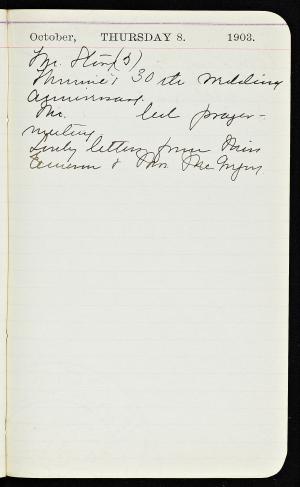 October, THURSDAY 8. 1903.
Mr. (5)
Minnie's 30th Wedding
Anniversary.
Mr. led prayer-
meeting
Lovely letters from Miss
Cameron & Mrs